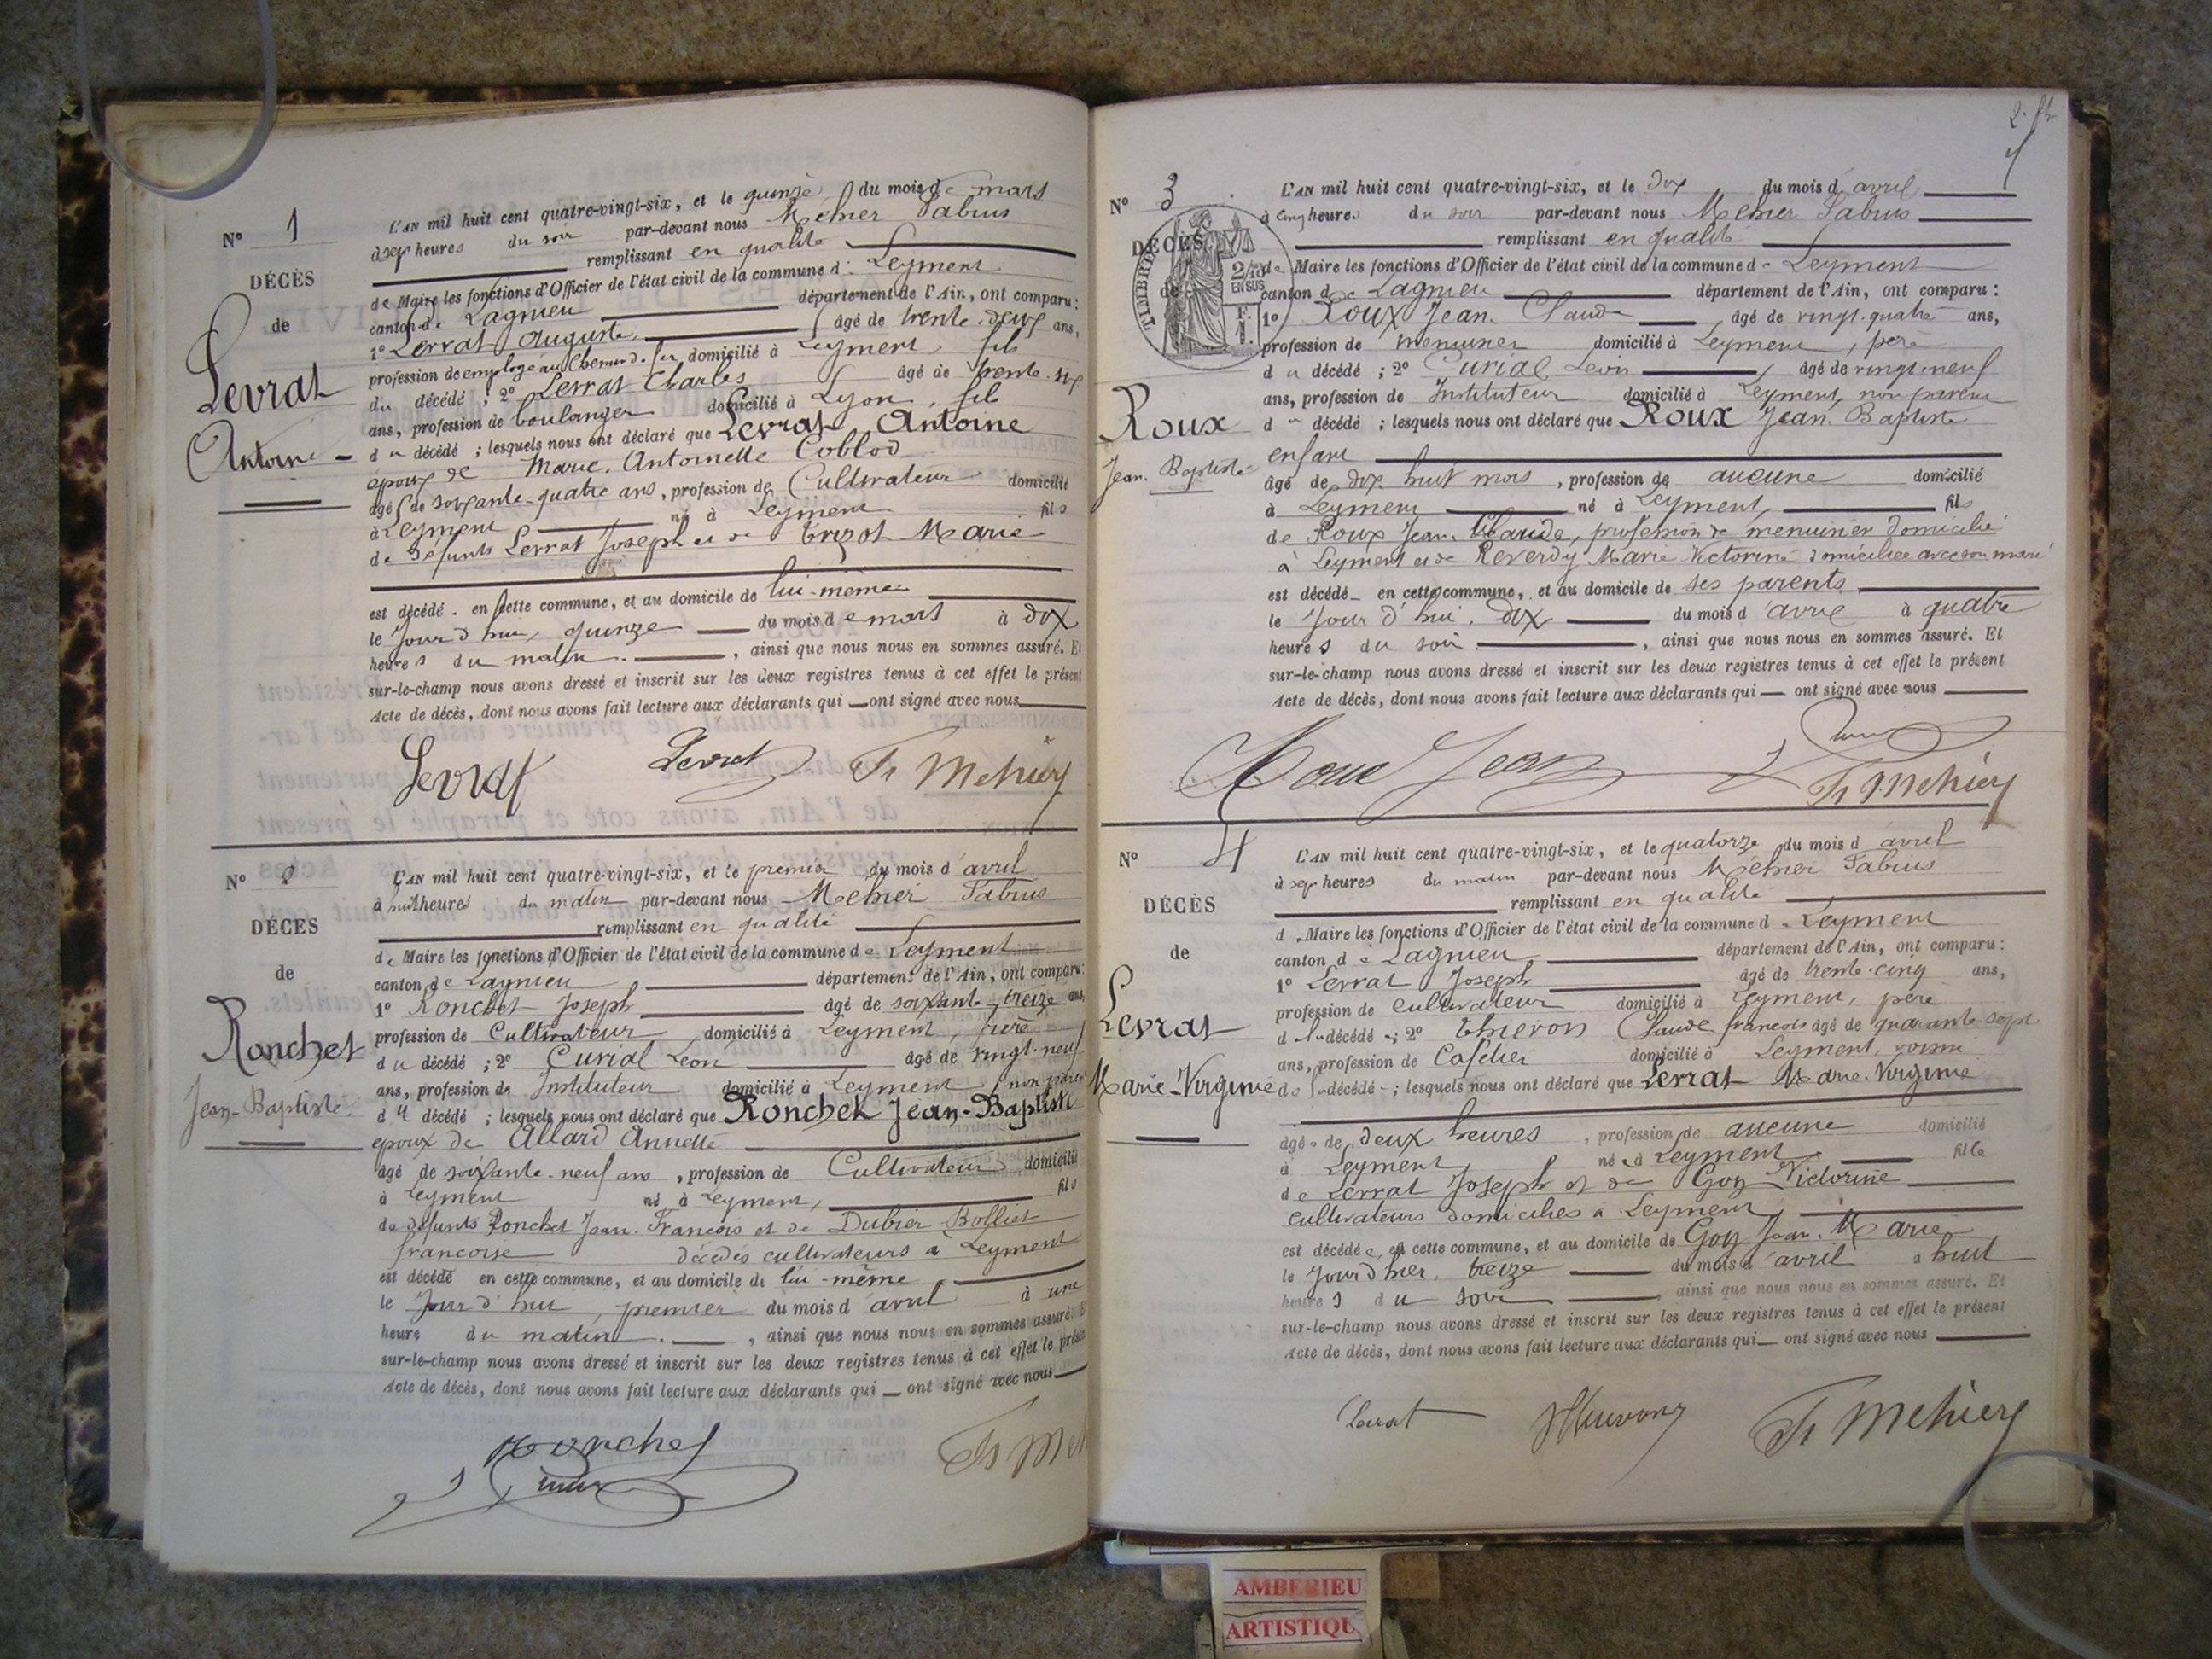 N° 1
DÉCÈS
de
Levrat
Antoine
L'AN mil huit cent quatre-vingt-six, et le quinze du mois de mars
à sept heures du soir par-devant nous Méhier Fabius
remplissant en qualité
de Maire les fonctions d'Officier de l'état civil de la commune de Leyment
canton de Lagnieu département de l'Ain, ont comparu :
1° Levrat Auguste, âgé de trente-deux ans,
profession de employé au chemin de fer, domicilié à Leyment, fils
du décédé ; 2° Levrat Charles âgé de trente-six
ans, profession de boulanger domicilié à Lyon, fils
du décédé ; lesquels nous ont déclaré que Levrat Antoine
époux de Marie-Antoinette Coblod
âgé de soixante-quatre ans, profession de Cultivateur domicilié
à Leyment né à Leyment fils
de défunts Levrat Joseph et de Marie
est décédé en cette commune, et au domicile de lui-même
le jour d'hui, quinze du mois de mars à dix
heures du matin. , ainsi que nous nous en sommes assuré. Et
sur-le-champ nous avons dressé et inscrit sur les deux registres tenus à cet effet le présent
Acte de décès, dont nous avons fait lecture aux déclarants qui ont signé avec nous
Levrat Levrat Fs Mehier
N° 2
DÉCÈS
de
Ronchet
Jean-Baptiste.
L'AN mil huit cent quatre-vingt-six, et le premier du mois d'avril
à huit heures du matin par-devant nous Méhier Fabius
remplissant en qualité
de Maire les fonctions d'Officier de l'état civil de la commune de Leyment
canton de Lagnieu département de l'Ain, ont comparu :
1° Ronchet Joseph âgé de soixante-treize ans,
profession de Cultivateur, domicilié à Leyment, frère
du décédé ; 2° Curial Léon âgé de vingt-neuf
ans, profession de Instituteur domicilié à Leyment, non parent
du décédé ; lesquels nous ont déclaré que Ronchet Jean-Baptiste
époux de Allard Annette
âgé de soixante-neuf ans, profession de Cultivateur domicilié
à Leyment né à Leyment, fils
de défunts Ronchet Jean-François et de Dubier-Bolliet
françoise décédés cultivateurs à Leyment
est décédé en cette commune, et au domicile de lui-même
le jour d'hui, premier du mois d'avril à une
heure du matin. , ainsi que nous nous en sommes assuré. E
sur-le-champ nous avons dressé et inscrit sur les deux registres tenus à cet effet le présen
Acte de décès, dont nous avons fait lecture aux déclarants qui ont signé avec nous
Ronchet Fs Meh
N° 3
DÉCÈS
de
TIMBRE
2/10
EN SUS
F.
1.
Roux
Jean-Baptiste
L'AN mil huit cent quatre-vingt-six, et le dix du mois d'avril
à cinq heures du soir par-devant nous Méhier Fabius
remplissant en qualité
de Maire les fonctions d'Officier de l'état civil de la commune de Leyment
canton de Lagnieu département de l'Ain, ont comparu :
1° Roux Jean-Claude, âgé de vingt-quatre ans,
profession de menuisier domicilié à Leyment, père
du décédé ; 2° Curial Léon, âgé de vingt-neuf
ans, profession de Instituteur domicilié à Leyment, non parent
du décédé ; lesquels nous ont déclaré que Roux Jean-Baptiste
enfant
âgé de dix-huit mois, profession de aucune domicilié
à Leyment né à Leyment, fils
de Roux Jean-Claude, profession de menuisier domicilié
à Leyment et de Reverdy Marie Victorine domiciliée avec son mari
est décédé en cette commune, et au domicile de ses parents
le jour d'hui, dix du mois d'avril à quatre
heures du soir , ainsi que nous nous en sommes assuré. Et
sur-le-champ nous avons dressé et inscrit sur les deux registres tenus à cet effet le présent
Acte de décès, dont nous avons fait lecture aux déclarants qui ont signé avec nous
Roux Jean Fs Mehier
N° 4
DÉCÈS
de
Levrat
Marie-Virginie
L'AN mil huit cent quatre-vingt-six, et le quatorze du mois d'avril
à sept heures du matin par-devant nous Méhier Fabius
remplissant en qualité
de Maire les fonctions d'Officier de l'état civil de la commune de Leyment
canton de Lagnieu département de l'Ain, ont comparu :
1° Levrat Joseph âgé de trente-cinq ans,
profession de cultivateur domicilié à Leyment, père
de la décédée ; 2° Thievon Claude françois âgé de quarante-sept
ans, profession de Cafetier domicilié à Leyment, voisin
de la décédée ; lesquels nous ont déclaré que Levrat Marie-Virginie
âgée de deux heures, profession de aucune domicilié
à Leyment née à Leyment, fille
de Levrat Joseph et de Goy Victorine
cultivateurs domiciliés à Leyment
est décédée, en cette commune, et au domicile de Goy Jean-Marie
le jour d'hier, treize du mois d'avril à huit
heures du soir , ainsi que nous nous en sommes assuré. Et
sur-le-champ nous avons dressé et inscrit sur les deux registres tenus à cet effet le présent
Acte de décès, dont nous avons fait lecture aux déclarants qui ont signé avec nous
Levrat Thievon Fs Mehier
AMBERIEU
ARTISTIQU